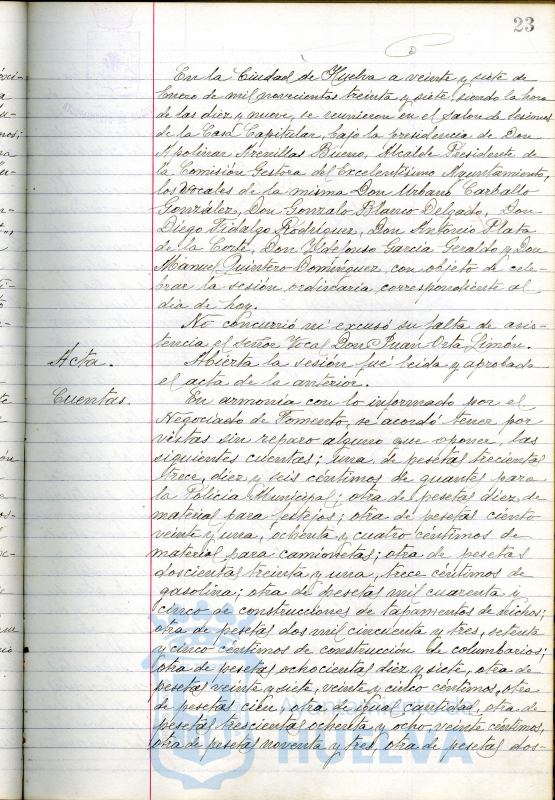 23
En la Ciudad de Huelva a veinte y siete de
Enero de mil novecientos treinta y siete, siendo la hora
de las diez y nueve, se reunieron en el Salon de sesiones
de la Casa Capitular, bajo la presidencia de Don
Apolinar Arenillas Bueno, Alcalde Presidente de
la Comisión Gestora del Excelentísimo Ayuntamiento,
los vocales de la misma Don Urbano Carballo
González, Don Gonzalo Blanco Delgado, Don
Diego Fidalgo Rodríguez, Don Antonio Plata
de la Corte, Don Ildefonso García Geraldo y Don
Manuel Quintero Domínguez, con objeto de cele-
brar la sesión ordinaria correspondiente al
día de hoy.
No concurrió ni excusó su falta de asis-
tencia el Señor Vocal Don Juan Orta Limón.
Acta. Abierta la sesión fué leida y aprobada
el acta de la anterior.
Cuentas. En armonia con lo informado por el
Negociado de Fomento, se acordó tener por
vistas sin reparo alguno que oponer, las
siguientes cuentas; una de pesetas trecientas
trece, diez y seis céntimos de guantes para
la Policia Municipal; otra de pesetas diez, de
material para festejos; otra de pesetas ciento
veinte y una, ochenta y cuatro céntimos de
material para camionetas; otra de pesetas
doscientas treinta y una, trece céntimos de
gasolina; otra de pesetas mil cuarenta y
cinco de construcciones de tapamentos de nichos;
otra de pesetas dos mil cincuenta y tres, setenta
y cinco céntimos de construcción de columbarios;
otra de pesetas ochocientas diez y siete, otra de
pesetas veinte y siete, veinte y cinco céntimos, otra
de pesetas cien, otra de igual cantidad, otra de
pesetas trescientas ochenta y ocho, veinte céntimos,
otra de pesetas noventa y tres, otra de pesetas dos-
HUELVA